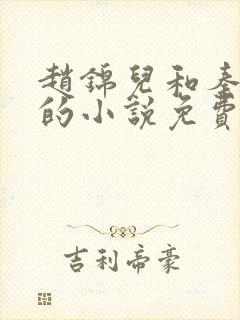 趙錦兒和秦
的小說免費
吉利帝豪